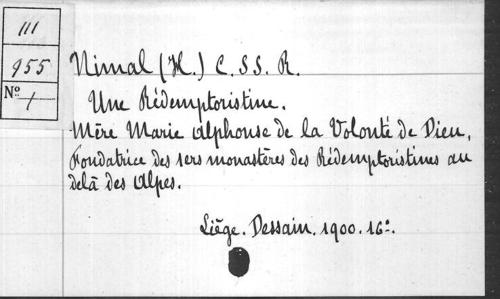 III
955
No 1
Nimal (H.) C. SS. R.
Une Rédemptoristine.
Mère Marie Alphonse de la Volonté de Dieu,
Fondatrice des 1ers monastères des Rédemptoristines au
delà des Alpes.
Liège. Dessain. 1900. 16o.